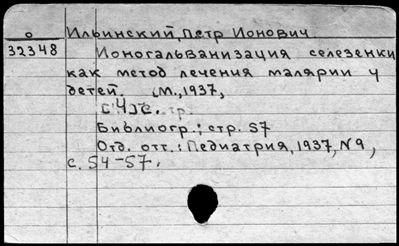 о Ильинский, Петр Ионович
32348 Ионогальванизация селезенки
как метод лечения малярии у
детей. [М., 1937,
[4]с. стр.
Библиогр.: стр. 57
Отд. отт.: Педиатрия, 1937, N9,
с. 54-57.